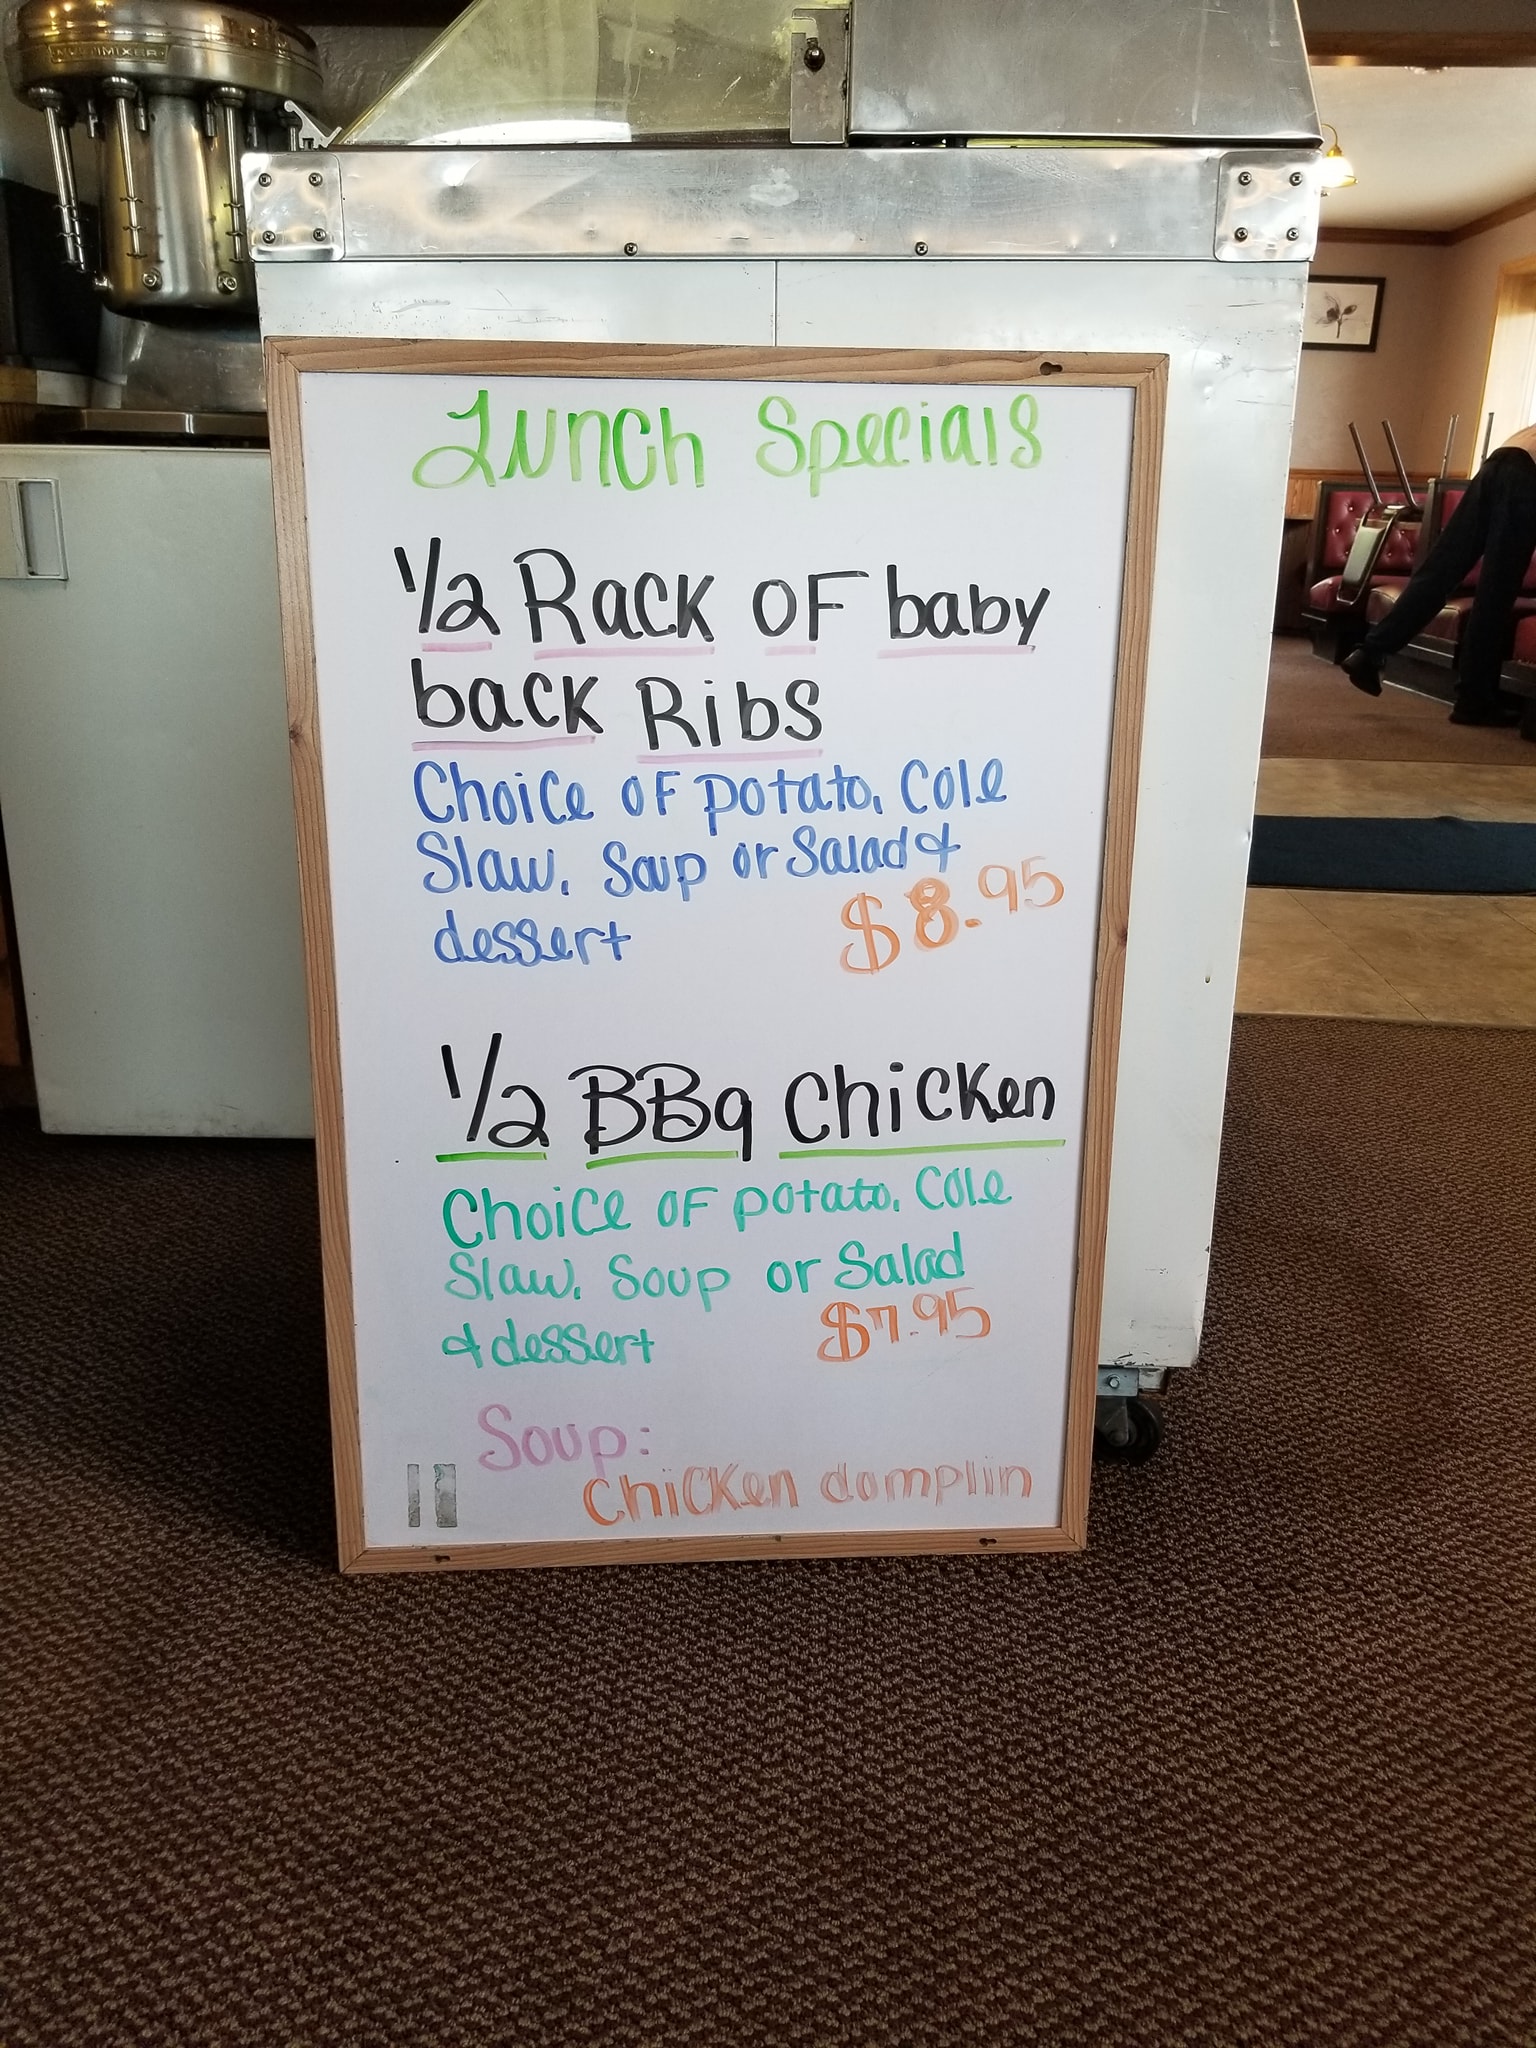 MULTIMIXER
Lunch Specials
1/2 Rack OF baby
back Ribs
Choice OF potato, Cole
Slaw, Soup or Salad &
dessert $8.95
1/2 BBq Chicken
Choice OF potato, Cole
Slaw, Soup or Salad
& dessert $7.95
Soup:
Chicken domplin